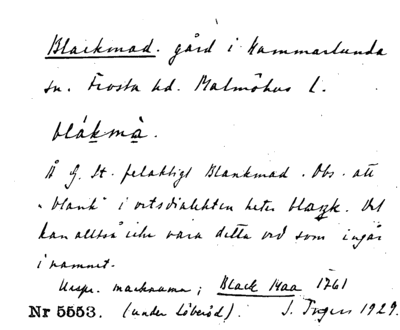 Blackmad. gård i Hammarlunda
sn. Frosta hd. Malmöhus l.
blákmà.
Å G. St. felaktigt Blankmad. Obs. att
"blank" i ortsdialekten heter blaŋk. Det
kan alltså icke vara detta ord som ingår
i namnet.
Urspr. marknamn; Black Maa 1761
Nr 5553. (under Löberöd). I. Ingers 1929.